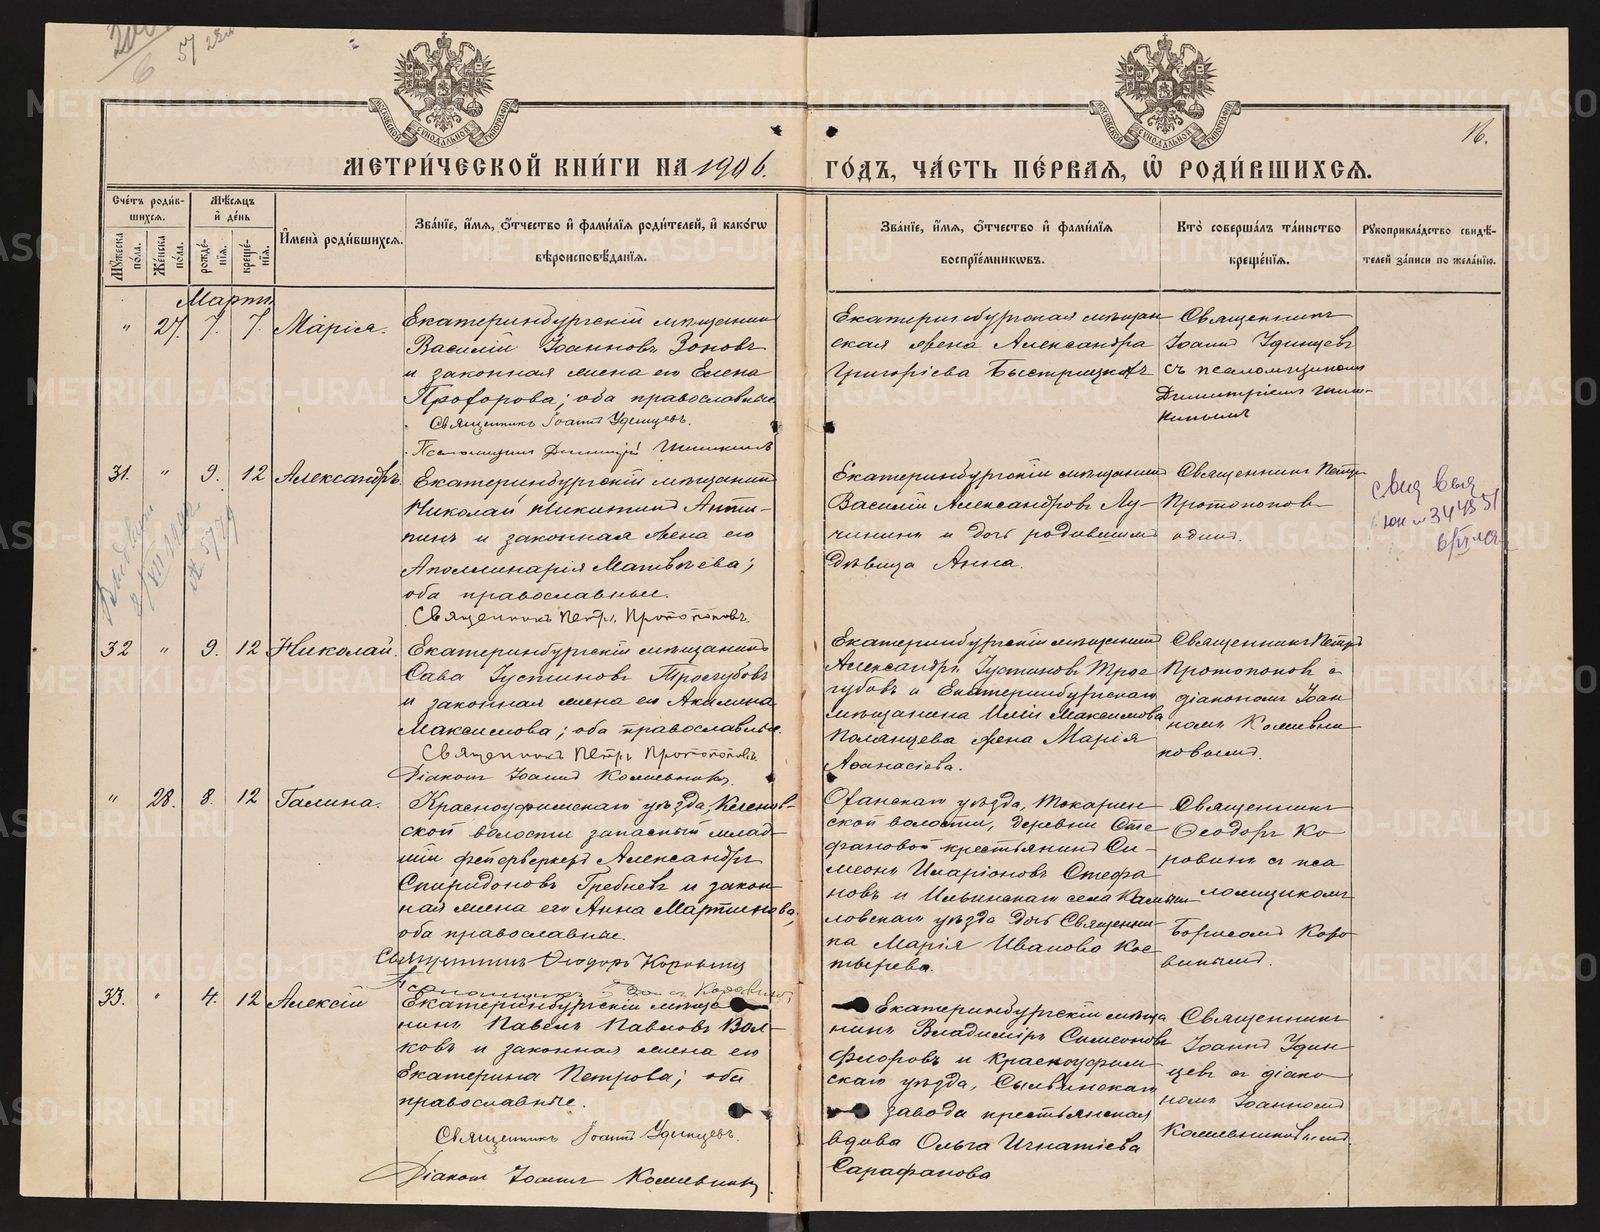 16.
МЕТРИ́ЧЕСКОЙ КНИ́ГИ НА 1906. ГО́ДЪ, ЧА́СТЬ ПЕ́РВАЯ, Ѽ РОДИ́ВШИХСЯ.
Сче́тъ роди́в-
шихся.
Мѣ́сяцъ
и҆ де́нь
Мꙋ́жеска
по́ла.
Же́нска
по́ла.
рожде́-
нїя.
креще́-
нїя.
И҆мена̀ роди́вшихся.
Зва́нїе, и҆́мя, ѻ҆́тчество и҆ фами́лїя роди́телей, и҆ како́гѡ
вѣроисповѣ́данїя.
Зва́нїе, и҆́мя, ѻ҆́тчество и҆ фами́лїя
воспрїе́мникѡвъ.
Кто̀ соверша́лъ та́инство
креще́нїя.
Рꙋкоприкла́дство свидѣ́-
телей за́писи по жела́нїю.
Мартъ
" 27. 7. 7. Марія.
Екатеринбургскій мѣщанинъ
Василій Іоанновъ Зоновъ
и законная жена его Елена
Прохорова; оба православные.
Священникъ Іоаннъ Удинцевъ.
Псаломщикъ Димитрій Шишкинъ
Екатеринбургская мѣщан
ская жена Александра
Григоріева Быстрицкая
Священникъ
Іоаннъ Удинцевъ
съ псаломщикомъ
Димитріемъ Шиш-
кинымъ
31. " 9. 12 Александръ.
Екатеринбургскій мѣщанинъ
Николай Никитинъ Анти-
пинъ и законная жена его
Аполлинарія Матвѣева;
оба православные.
Священникъ Петръ Протопоповъ.
Екатеринбургскій мѣщанинъ
Василій Александровъ Лу-
чининъ и дочь родившаго
дѣвица Анна.
Священникъ Петръ
Протопоповъ
одинъ.
32 " 9. 12 Николай.
Екатеринбургскій мѣщанинъ
Сава Іустиновъ Троегубовъ
и законная жена его Акилина
Максимова; оба православные.
Священникъ Петръ Протопоповъ.
Діаконъ Іоаннъ Кошевниковъ
Екатеринбургскій мѣщанинъ
Александръ Іустиновъ Трое
губовъ и Екатеринбургскаго
мѣщанина Иліи Максимова
Поланцева жена Марія
Аѳанасіева.
Священникъ Петръ
Протопоповъ с
діакономъ Іоан
номъ Кошевни
ковымъ.
" 28. 8. 12 Галина.
Красноуфимскаго уѣзда, Кленов-
ской волости запасный млад-
шій фейерверкеръ Александръ
Спиридоновъ Гребневъ и закон
ная жена его Анна Мартинова;
оба православные.
Священникъ Ѳеодоръ Коровинъ
Оханскаго уѣзда, Токарин
ской волости, деревни Сте
фановой крестьянинъ Си-
меонъ Иларіоновъ Стефа
новъ и Ильинскаго села Камыш
ловскаго уѣзда дочь Священни-
ка Марія Иванова Кос
тырева.
Священникъ
Ѳеодоръ Ко
ровинъ съ пса
ломщикомъ
Борисомъ Коро
винымъ.
33. " 4. 12 Алексій
Екатеринбургскій мѣща
нинъ Павелъ Павловъ Вол-
ковъ и законная жена его
Екатерина Петрова; оба
православные.
Священникъ Іоаннъ Удинцевъ.
Діаконъ Іоаннъ Кошевниковъ
Екатеринбургскій мѣща
нинъ Владиміръ Симеоновъ
Флоровъ и Красноуфим
скаго уѣзда, Сылвинскаго
завода крестьянская
вдова Ольга Игнатіева
Сарафанова
Священникъ
Іоаннъ Удин
цевъ съ діако
номъ Іоанномъ
Кошевниковымъ.
METRIKI.GASO-URAL.RU